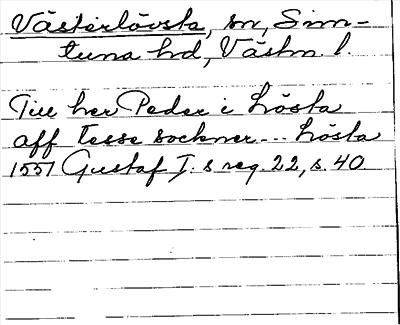 Västerlövsta, sn, Sim-
tuna hd, Västm. l.
Till her Peder i Lösta
aff tesse sockner... Lösta
1557 Gustaf I:s reg. 22, s. 40